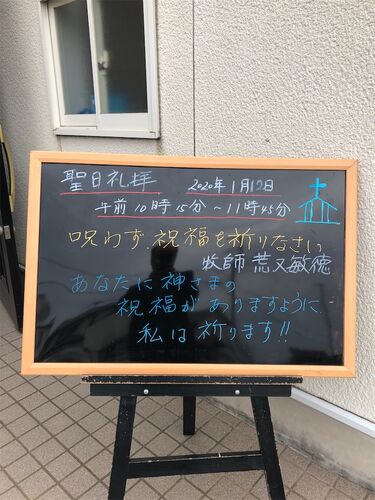 聖日礼拝 2020年1月12日
午前10時15分～11時45分
呪わず、祝福を祈りなさい
牧師 荒又敏徳
あなたに神さまの
祝福がありますように
私は祈ります!!